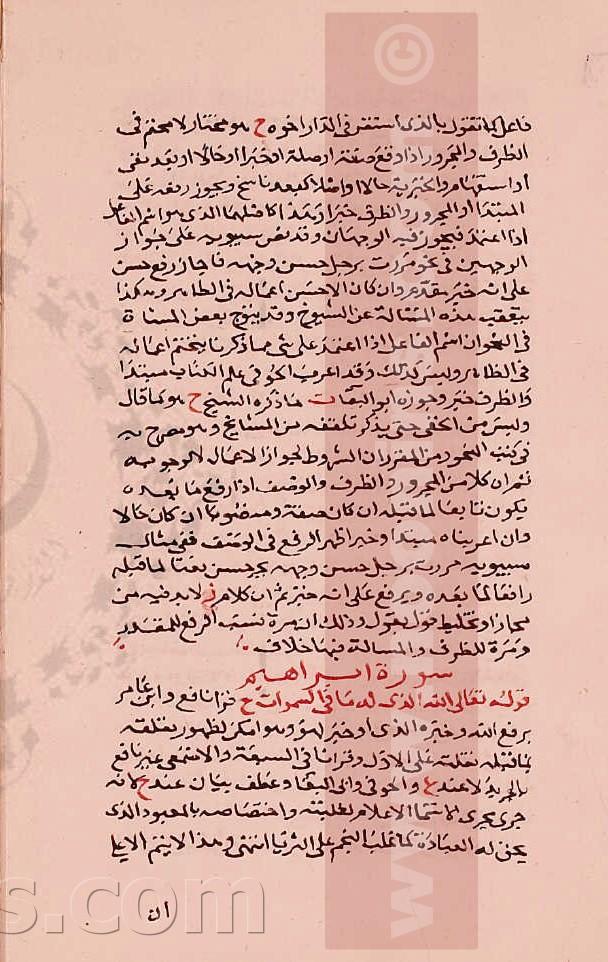 فاعل كما تقول بالذى استقر فى الدار اخوه ح هو مختار لا محتم فى
الظرف والمجرور اذا وقع صفة او صلة او خبرا او حالا او بعد نفى
او استفهام والخبرية حالا او اصلا كبعد ناسخ ويجوز رفعه على
المبتدا او المجرور والظرف خبرا وهذا كاصلهما الذى هو اسم الفاعل
اذا اعتمد فيجوز فيه الوجهان وقد نص سيبويه على جواز
الوجهين فى نحو مررت برجل حسن وجهه فاجاز رفع حسن
على انه خبر مقدم وان كان الاحسن اعماله فى الظاهر وهكذا
تلقفت هذه المسالة عن الشيوخ وقد يتوهم بعض النشاة
فى النحو ان اسم الفاعل اذا اعتمد على شى مما ذكرنا يتحتم اعماله
فى الظاهر وليس كذلك وقد اعرب الحوفى علم الكتاب مبتدا
والظرف خبر وجوزه ابو البقا ت ما ذكره الشيخ ح هو كما قال
وليس من الخفى حتى يذكر تلقفه من المشايخ وهو مصرح به
فى كتب النحو من المقرر ان الشروط لجواز الاعمال لا لوجوبه
ثم ان كلا من المجرور والظرف والوصف اذا رفع ما بعده
يكون تابعا لما قبله ان كان صفة ومنصوبا ان كان حالا
وان اعربناه مبتدا وخبر اظهر الرفع فى الوصف ففى مثال
سيبويه مررت برجل حسن وجهه يجر حسن نعتا لما قبله
رافعا لما بعده ويرفع على انه خبر ثم ان كلام ز لا بد فيه من
مجاز او تخليط قول بقول وذلك انه مرة نسب الرفع للمقدر
ومرة للظرف والمسالة فيها خلاف
سورة ابراهيم
قوله تعالى الله الذى له ما فى السموات ح قرا نافع وابن عامر
برفع الله وخبره الذى او خبر لهو وهو امكن لظهور تعلقه
بما قبله تفلته على الاول وقرا باقى السبعة والاصمعى عن نافع
بالجر بدلا عند ع والحوفى وابى البقا وعطف بيان عند ح لانه
جرى مجرى الاسما الاعلام لغلبته واختصاصه بالمعبود الذى
يحق له العبادة كما غلب النجم على الثريا انتهى وهذا لا يتم الا على
ان
s.com
www
©